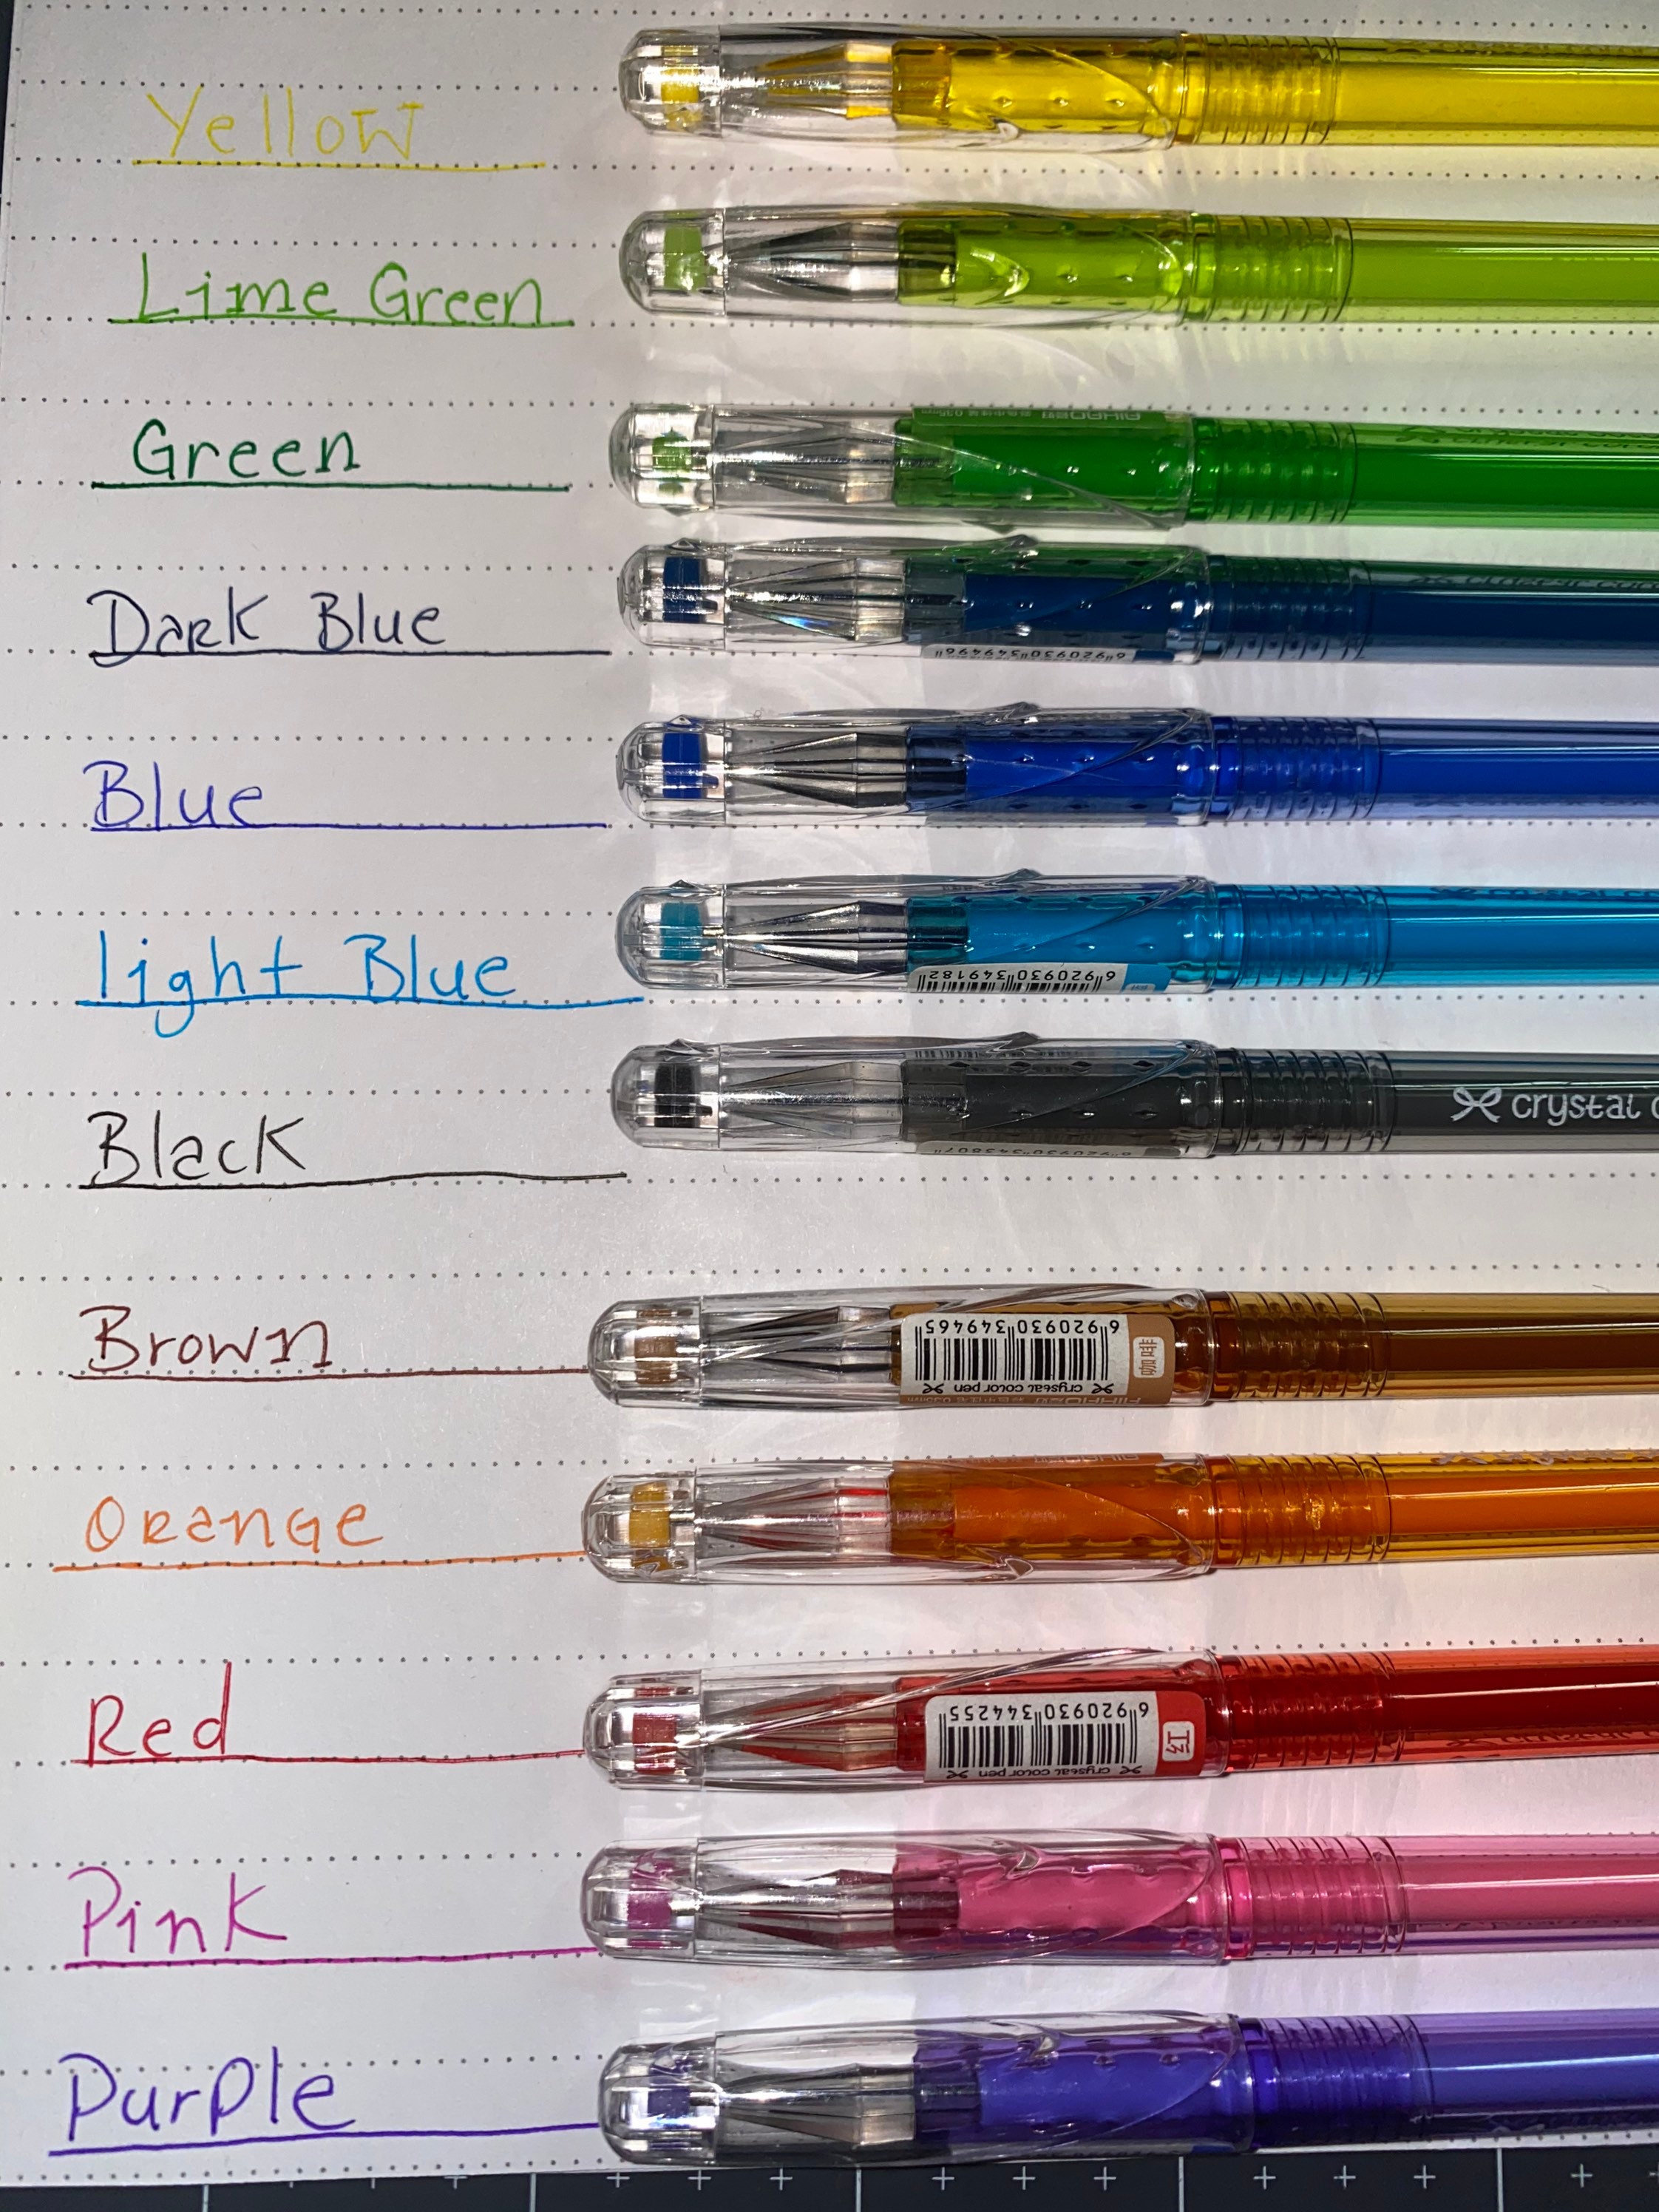 Yellow
Lime Green
Green
AIHAO
Dark Blue
6920930349496
Blue
light Blue
6920930349182
Black
crystal
Brown
6920930349465
crystal color pen
咖啡
Orange
Red
6920930344255
crystal color pen
红
Pink
Purple